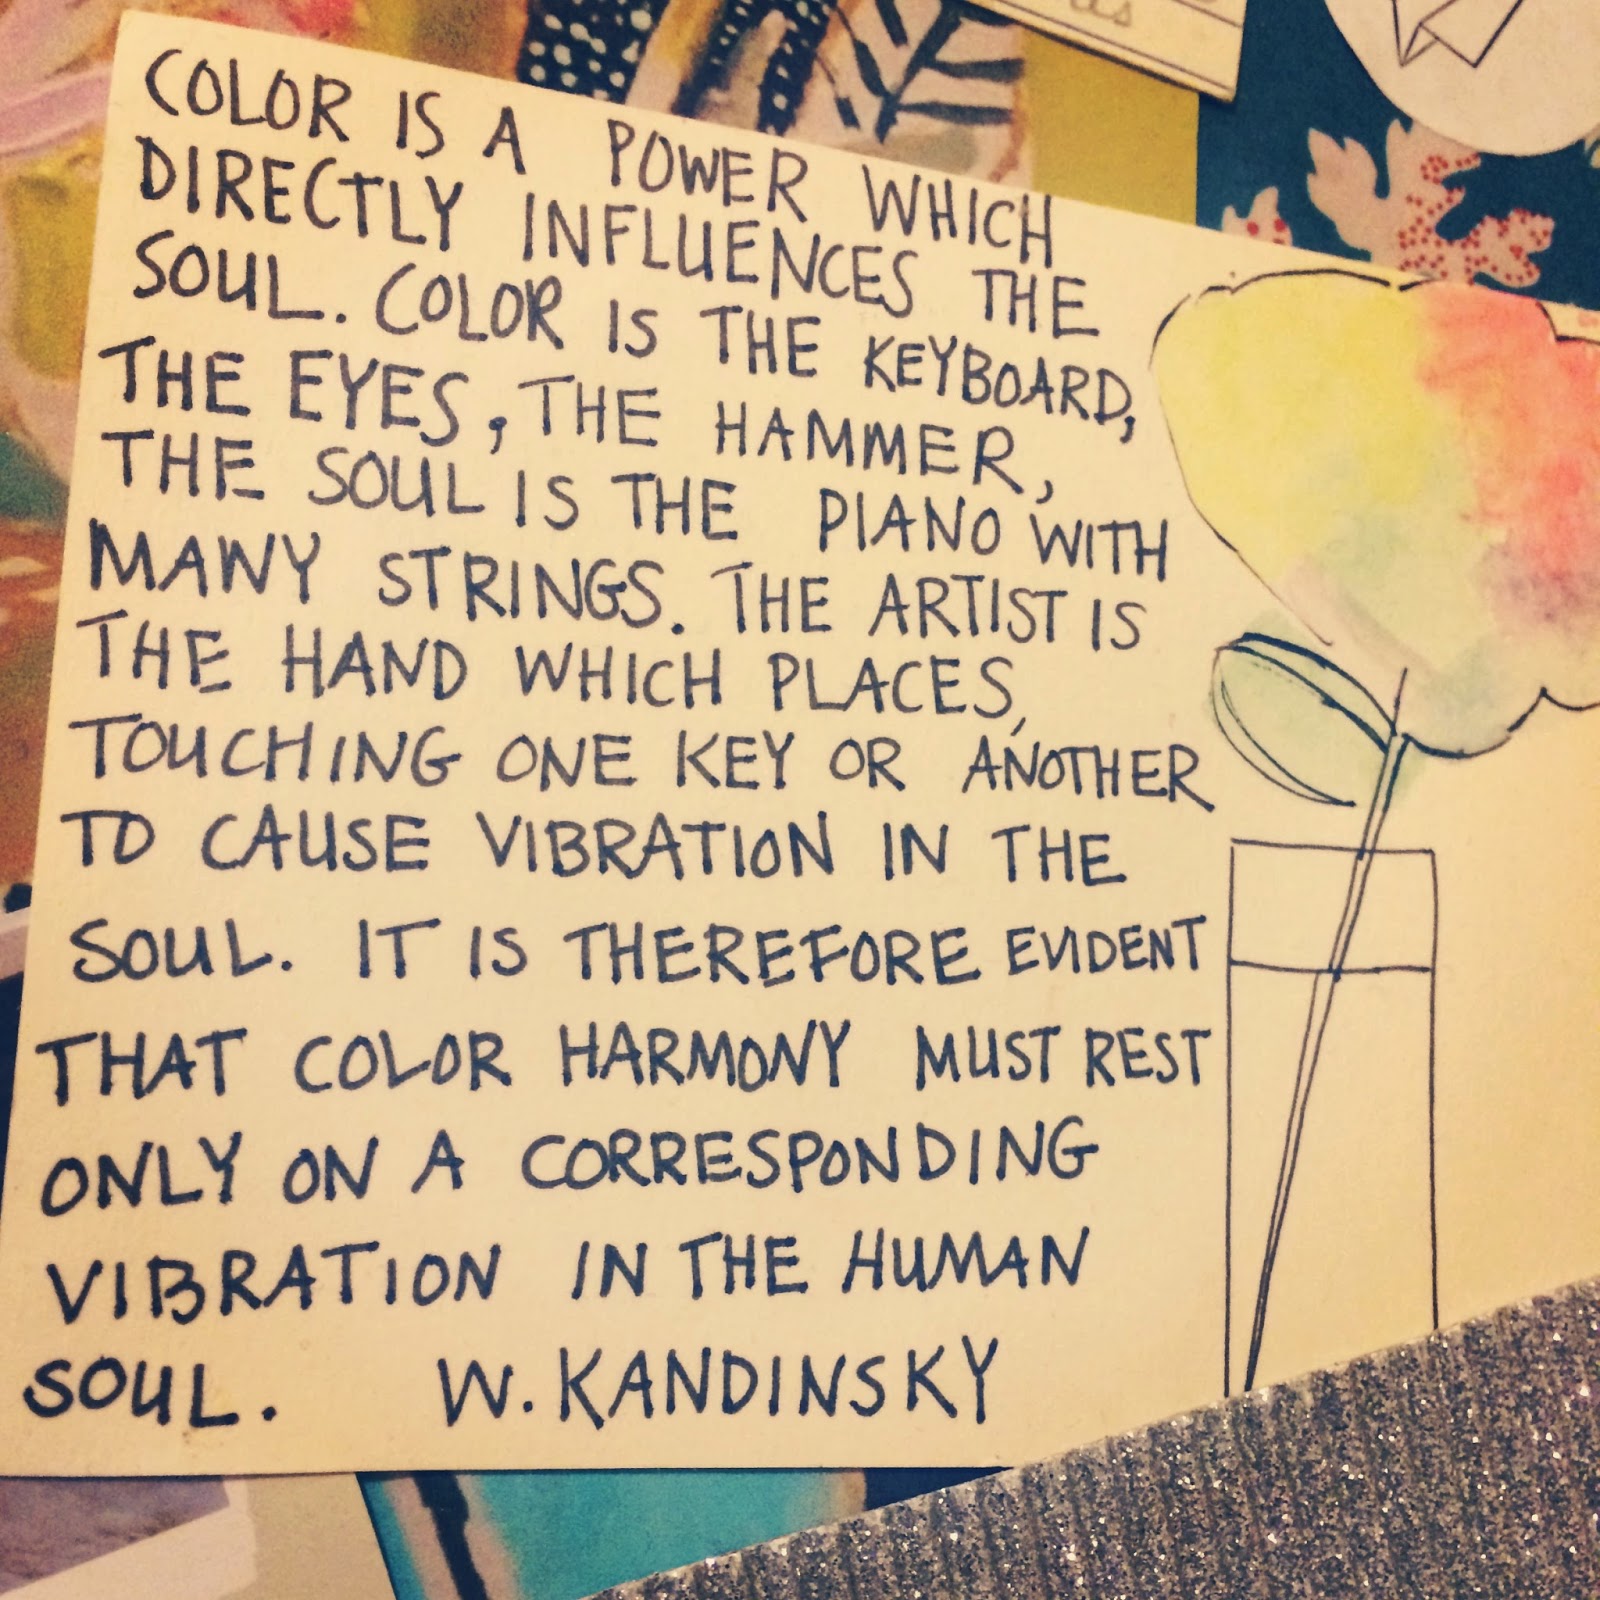 COLOR IS A POWER WHICH
DIRECTLY INFLUENCES THE
SOUL. COLOR IS THE KEYBOARD,
THE EYES, THE HAMMER,
THE SOUL IS THE PIANO WITH
MANY STRINGS. THE ARTIST IS
THE HAND WHICH PLACES,
TOUCHING ONE KEY OR ANOTHER
TO CAUSE VIBRATION IN THE
SOUL. IT IS THEREFORE EVIDENT
THAT COLOR HARMONY MUST REST
ONLY ON A CORRESPONDING
VIBRATION IN THE HUMAN
SOUL. W. KANDINSKY